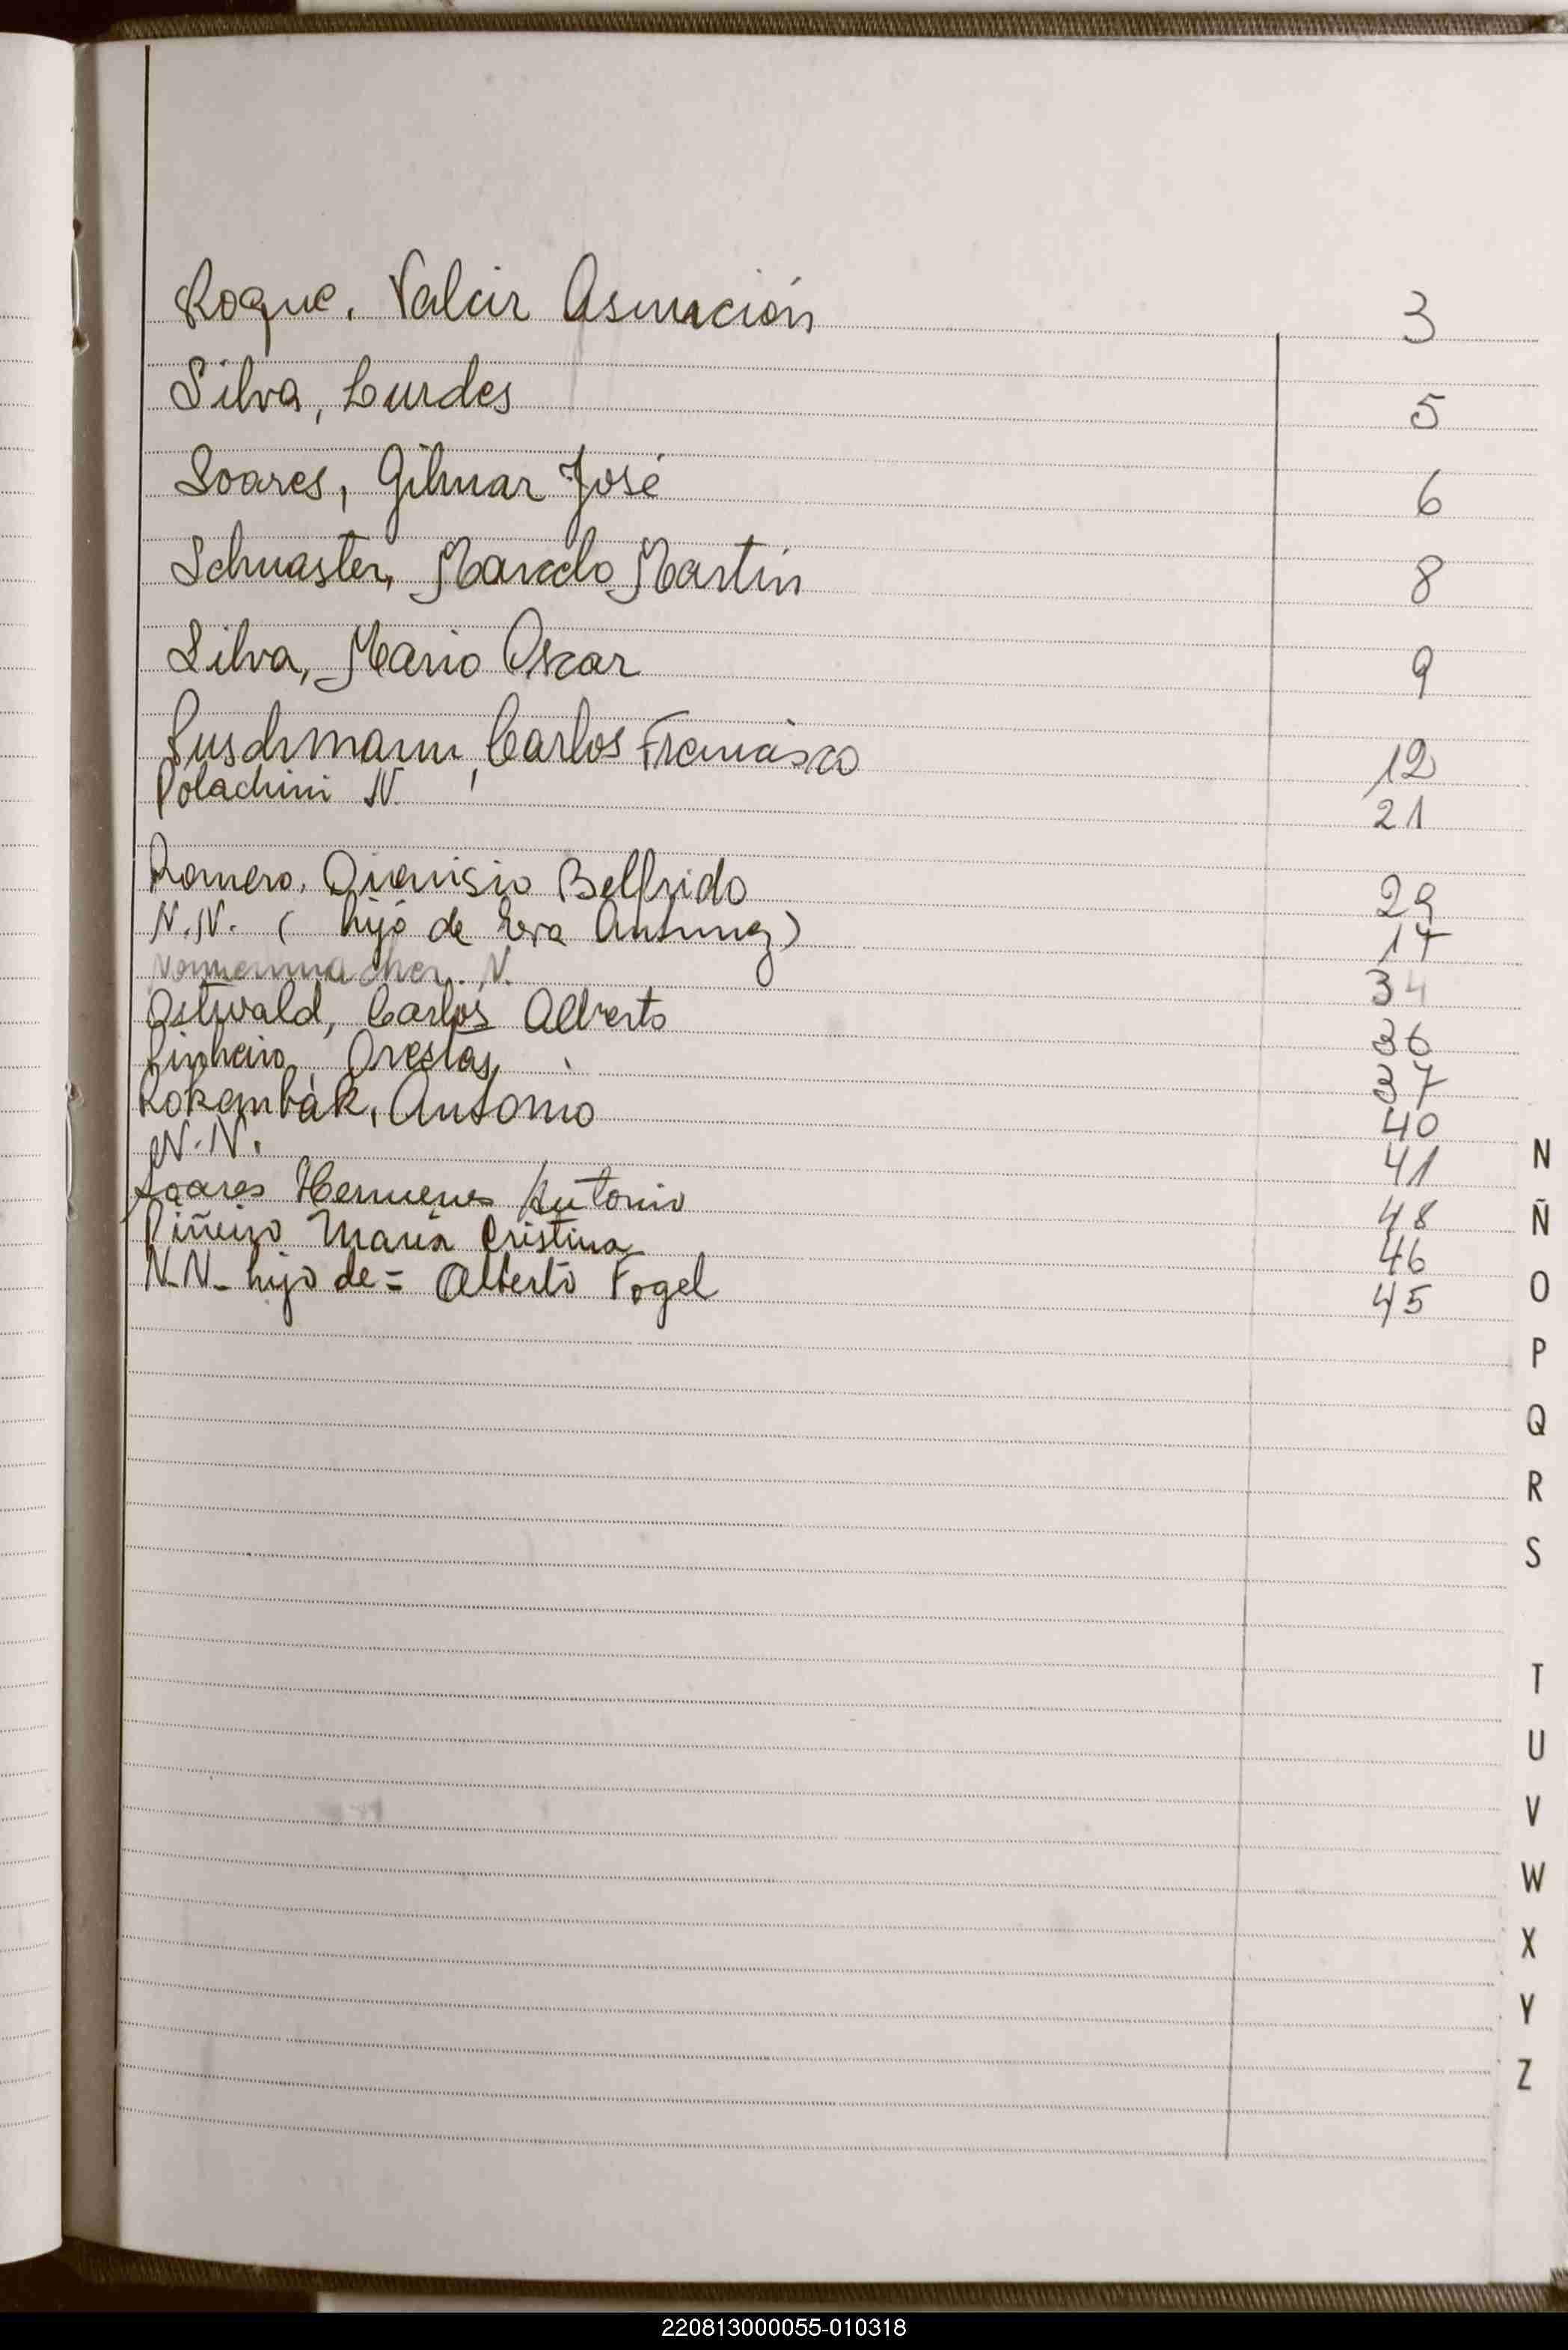 Roque, Valcir Asunción 3
Silva, Lurdes 5
Soares, Gilmar José 6
Schuaster, Marcelo Martín 8
Silva, Mario Oscar 9
Puschmann, Carlos Francisco 12
Polachini N. 21
Romero, Dionisio Belfrido 29
N.N. ( hijo de Eva Antunez) 17
N. 34
Ostwald, Carlos Alberto 36
Pinheiro, Orestas 37
Rokembak, Antonio 40
N.N. 41
Soares Hermenes Antonio 48
Piñeiro María Cristina 46
N.N- hijo de = Alberto Fogel 45
N
Ñ
O
P
Q
R
S
T
U
V
W
X
Y
Z
220813000055-010318